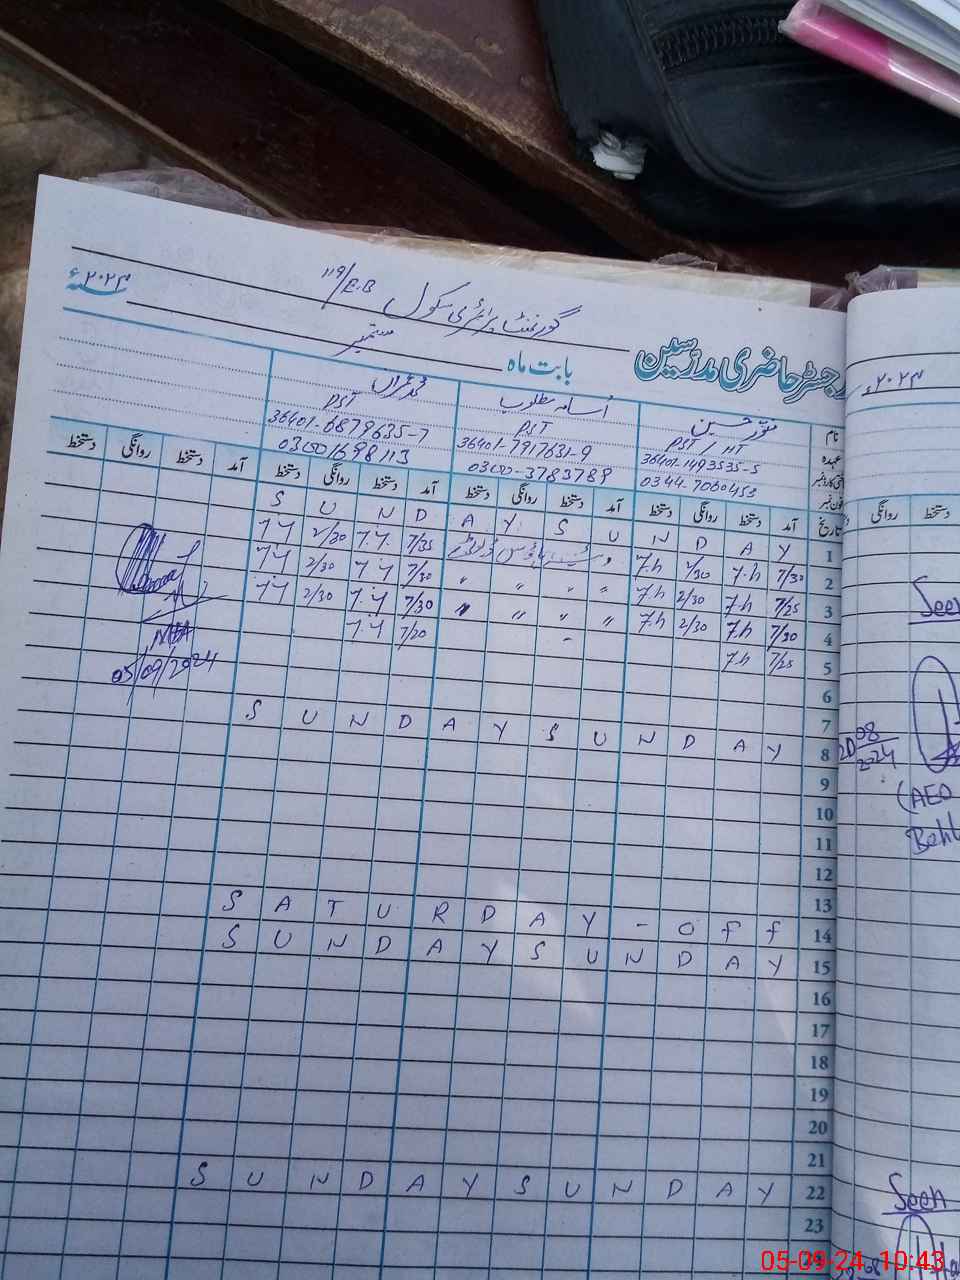 گورنمنٹ پرائمری سکول 119/E.B
رجسٹر حاضری مدرسین بابت ماہ ستمبر ۲۰۲۴ء
نام منور حسین اسامہ مطلوب محمد عمران
عہدہ PST / HT PST PST
36401-1493535-5 36401-7917631-9 36401-6879635-7
فون نمبر 0344-7060453 0300-3783789 03001698113
تاریخ آمد دستخط روانگی دستخط آمد دستخط روانگی دستخط آمد دستخط روانگی دستخط آمد دستخط روانگی دستخط
1 S U N D A Y S U N D A Y
2 7/30 7.h 2/30 7.h 7/35 7.Y 2/30 7Y
3 7/25 7.h 2/30 7.h " " " " 7/30 7.Y 2/30 7Y
4 7/30 7.h 2/30 7.h " " " " 7/30 7.Y 2/30 7Y
5 7/25 7.h 7/20 7.Y
6
7
8 S U N D A Y S U N D A Y
9
10
11
12
13
14 S A T U R D A Y - O f f
15 S U N D A Y S U N D A Y
16
17
18
19
20
21
22 S U N D A Y S U N D A Y
23
MEA
05/09/2024
۲۰۲۴ء
روانگی دستخط
Seen
08
2024
(AEO
Seen
05-09-24 10:43